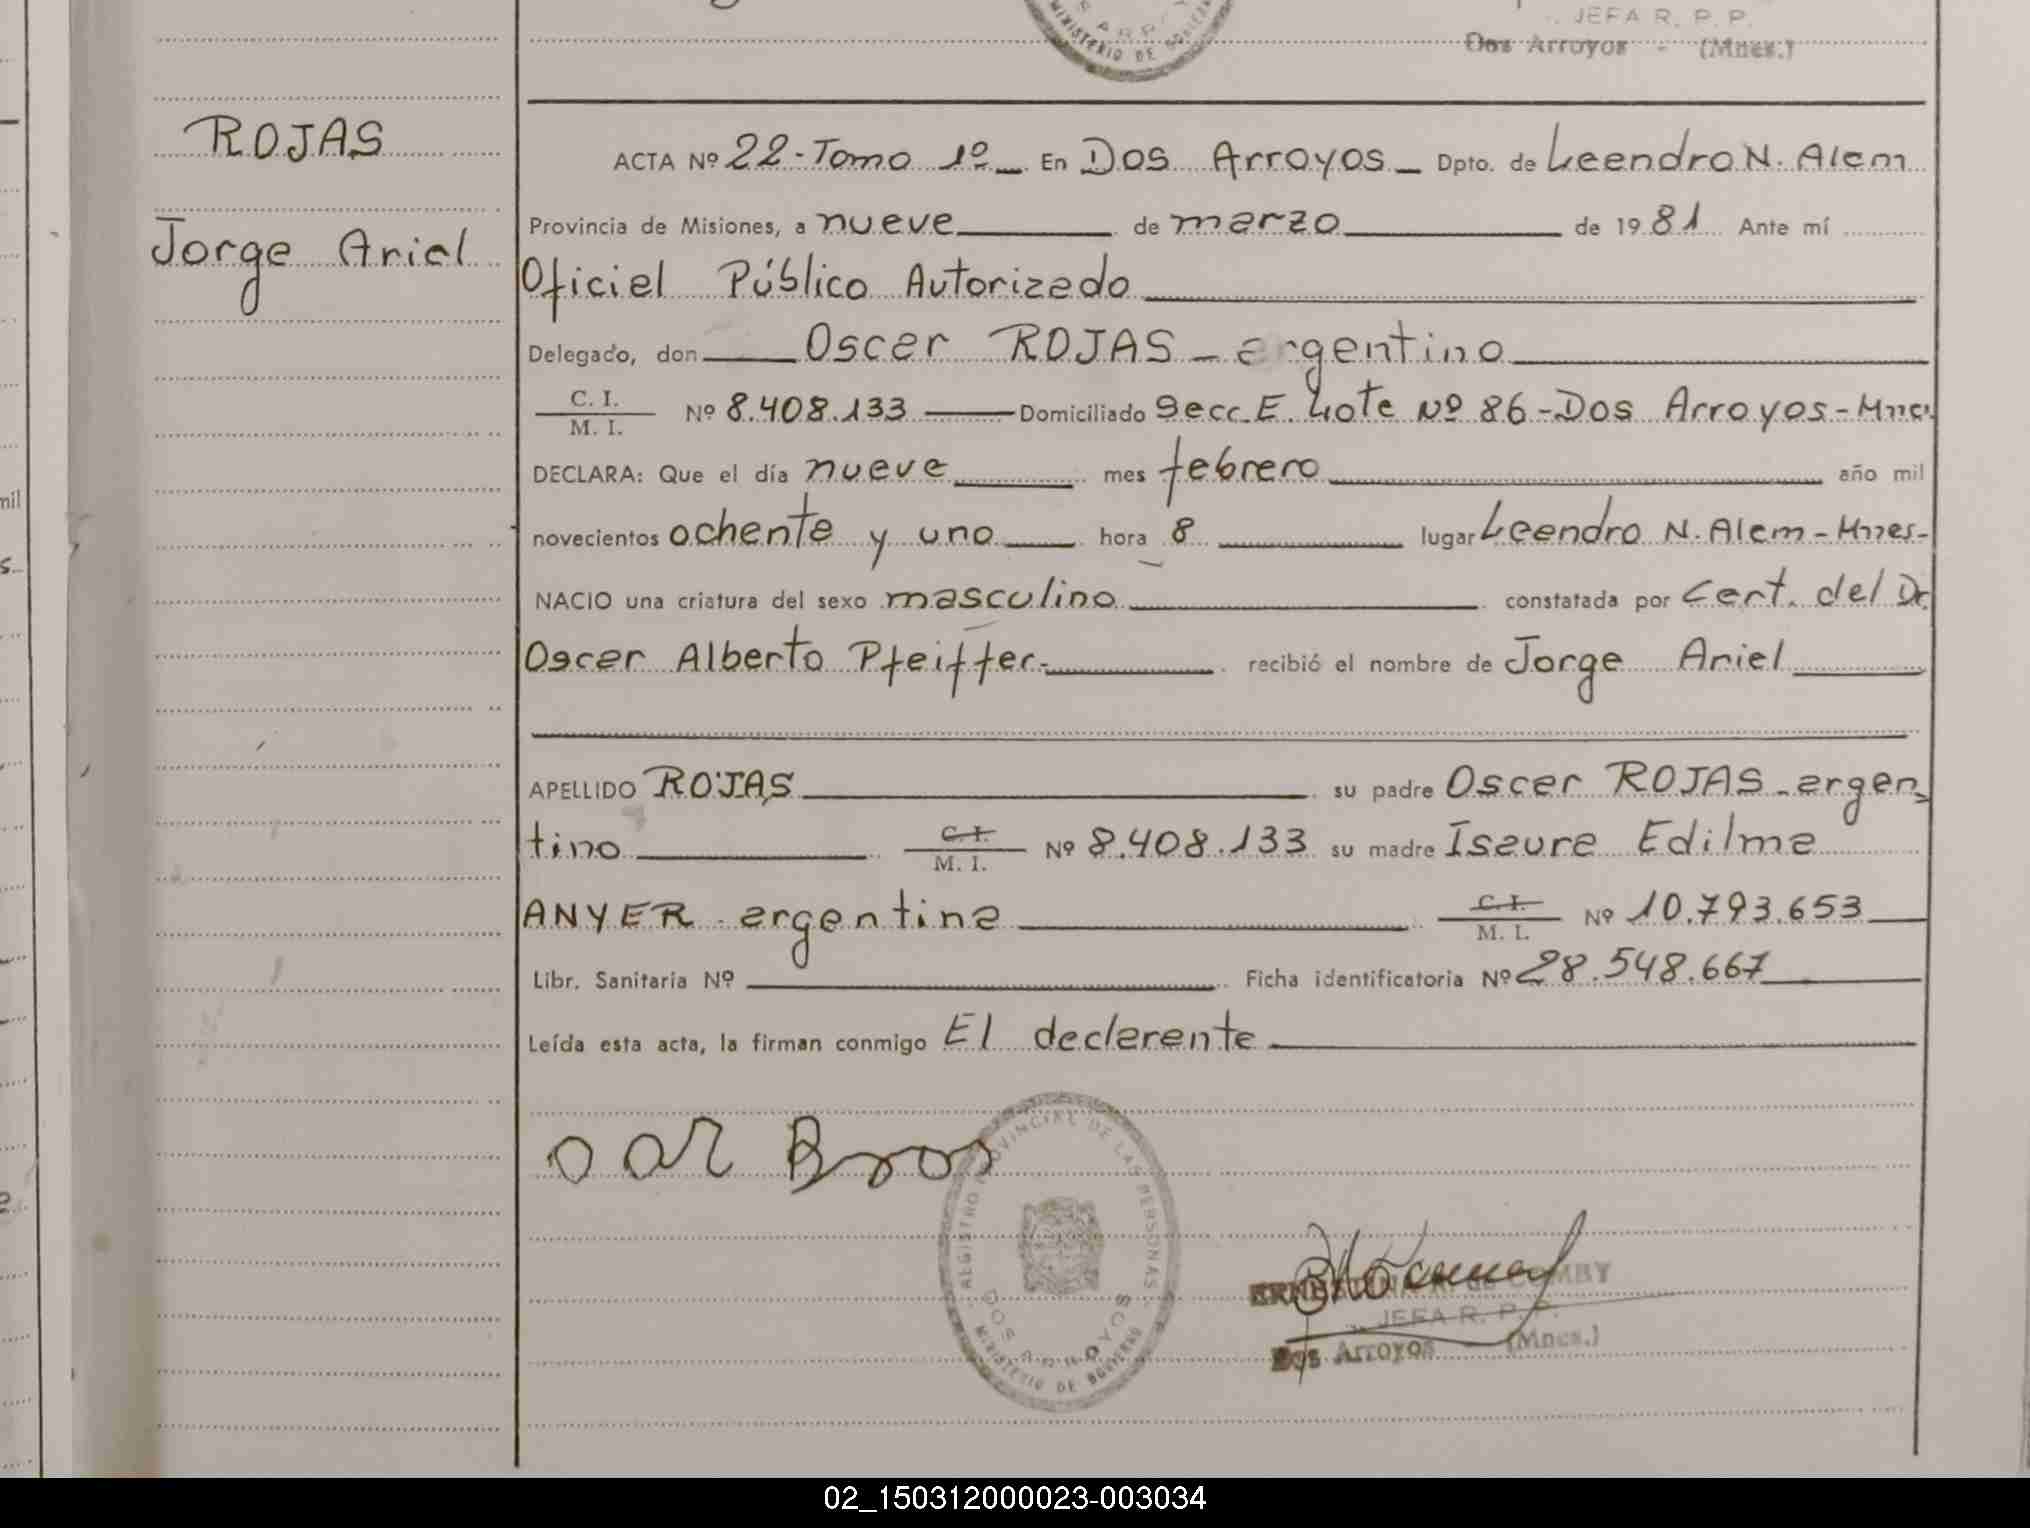 JEFA R. P. P.
MINISTERIO DE GOBIERNO
Dos Arroyos - (Mnes.)
ROJAS
Jorge Ariel
ACTA Nº 22-Tomo 1º En Dos Arroyos Dpto. de Leandro N. Alem
Provincia de Misiones, a nueve de marzo de 1981 Ante mí
Oficial Público Autorizado
Delegado, don Oscar ROJAS - argentino
C. I.
M. I.
Nº 8.408.133 Domiciliado Secc. E. Lote Nº 86-Dos Arroyos-Mnes
DECLARA: Que el día nueve mes febrero año mil
novecientos ochenta y uno hora 8 lugar Leandro N. Alem-Mnes-
NACIO una criatura del sexo masculino constatada por Cert. del Dr.
Oscar Alberto Pfeiffer- recibió el nombre de Jorge Ariel
APELLIDO ROJAS su padre Oscar ROJAS-argen
tino C. I. M. I. Nº 8.408.133 su madre Isaura Edilma
ANYER-argentina C. I. M. I. Nº 10.793.653
Libr. Sanitaria Nº Ficha identificatoria Nº 28.548.667
Leída esta acta, la firman conmigo El declarante
REGISTRO PROVINCIAL DE LAS PERSONAS
DOS ARROYOS
MINISTERIO DE GOBIERNO
JEFA R. P. P.
Dos Arroyos (Mnes.)
mil
s.
02_150312000023-003034